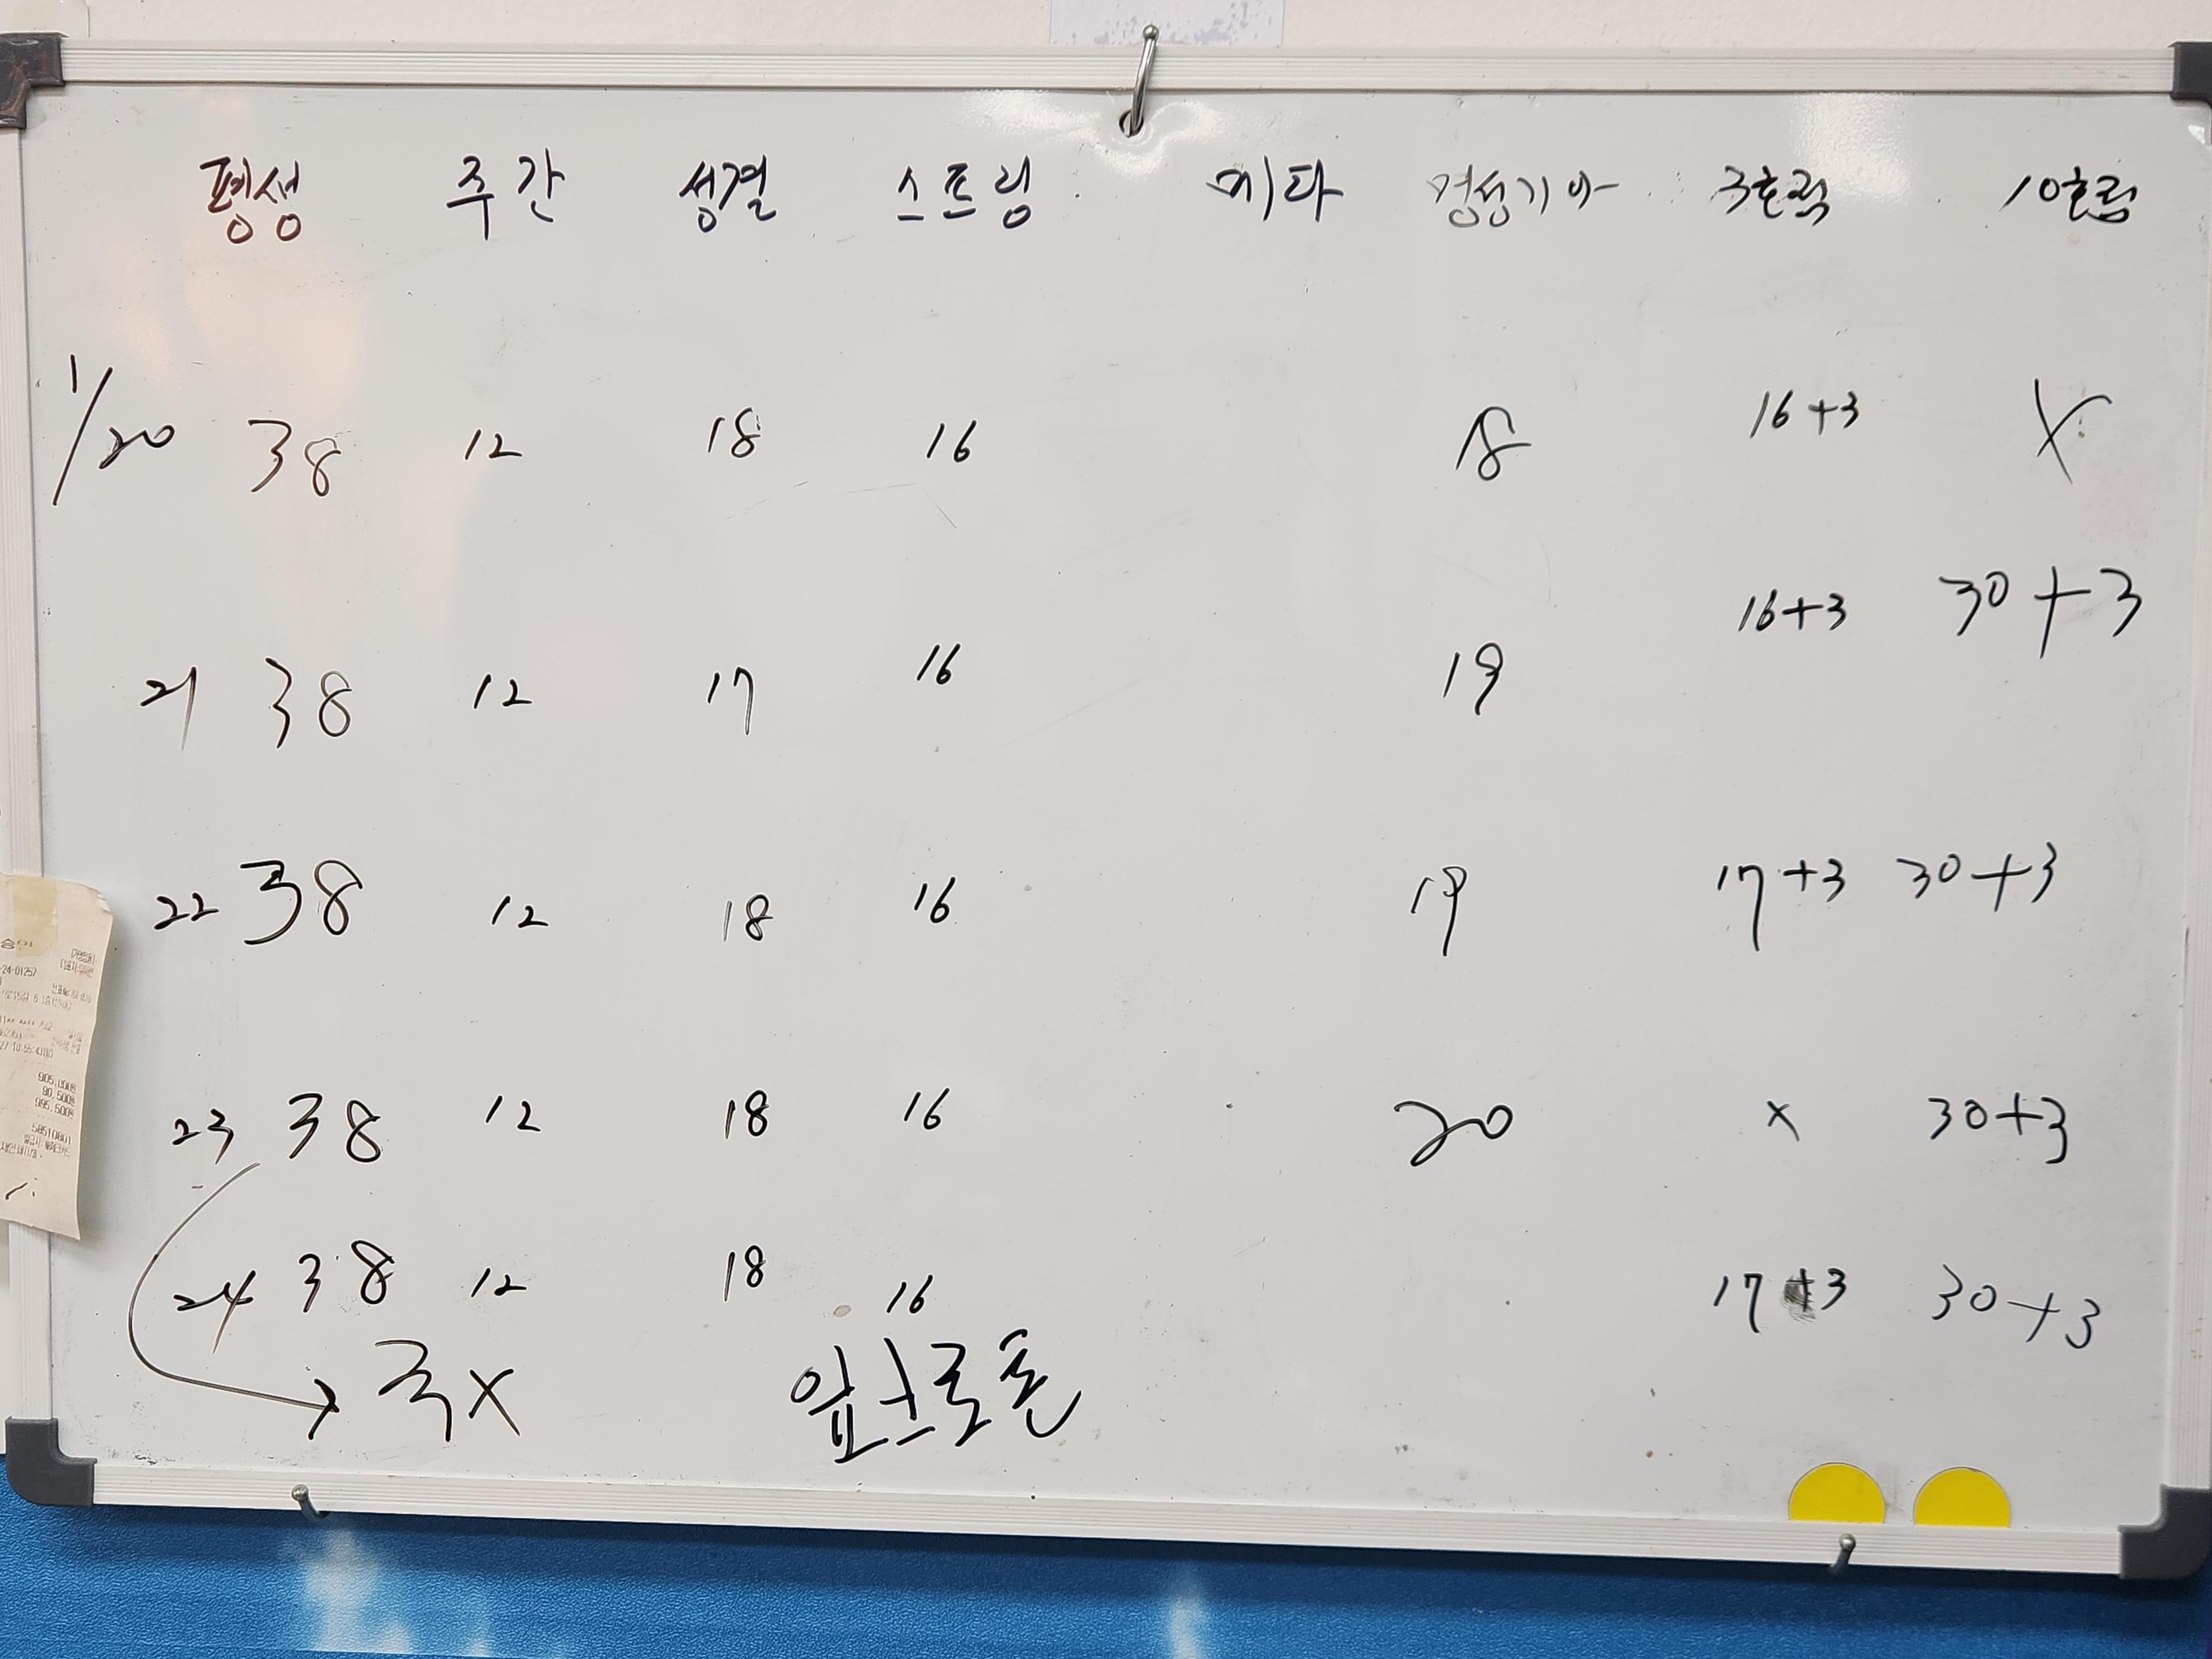 평생 주간 성결 스트링 메타 정성기아 3호점 10호점
1/20 38 12 18 16 18 16+3 X
21 38 12 17 16 19 16+3 30+3
22 38 12 18 16 19 17+3 30+3
23 38 12 18 16 20 x 30+3
24 38 12 18 16 17+3 30+3
→ 국X
905,000원
90,500원
995,500원